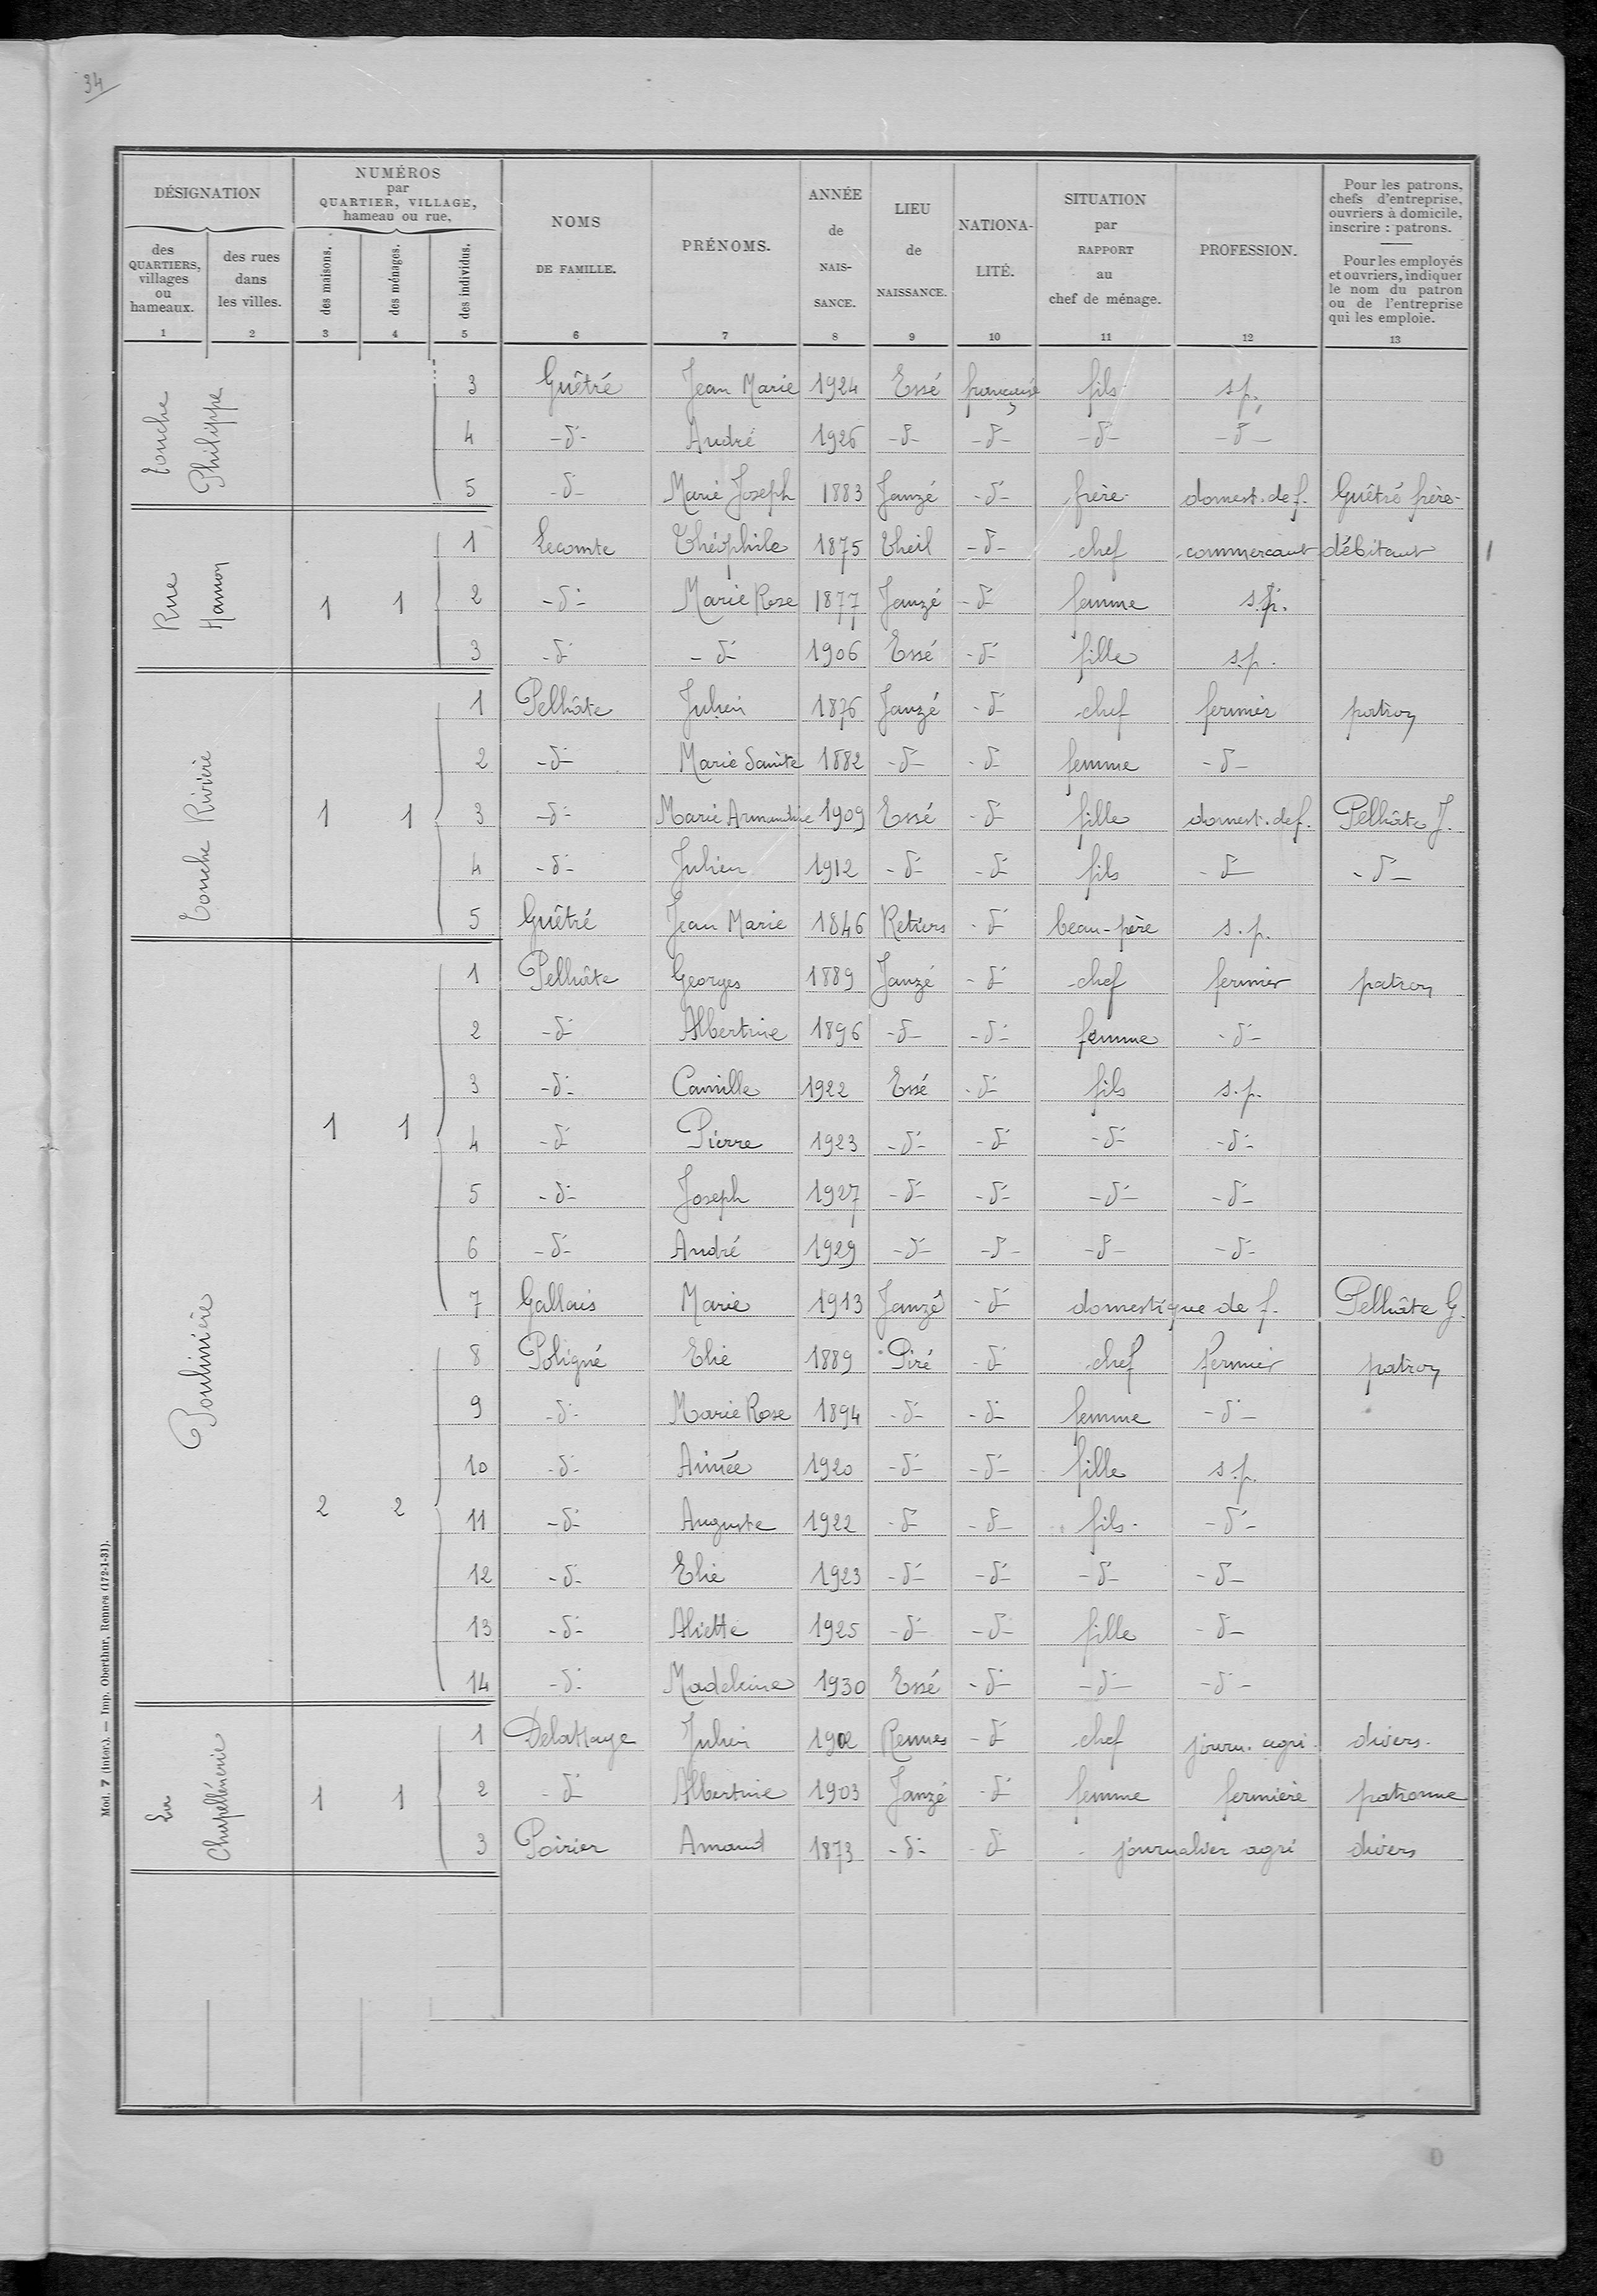 34
DÉSIGNATION
NUMÉROS
par
QUARTIER, VILLAGE,
hameau ou rue,
des
QUARTIERS,
villages
ou
hameaux.
des rues
dans
les villes.
des maisons.
des ménages.
des individus.
NOMS
DE FAMILLE.
PRÉNOMS.
ANNÉE
de
NAIS-
SANCE.
LIEU
de
NAISSANCE.
NATIONA-
LITÉ.
SITUATION
par
RAPPORT
au
chef de ménage.
PROFESSION.
Pour les patrons,
chefs d'entreprise,
ouvriers à domicile,
inscrire : patrons.
Pour les employés
et ouvriers, indiquer
le nom du patron
ou de l'entreprise
qui les emploie.
1 2 3 4 5 6 7 8 9 10 11 12 13
Touche
Philippe
3 Guêtré Jean Marie 1924 Essé française fils s.p.
4 -d- André 1926 -d- -d- -d- -d-
5 -d- Marie Joseph 1883 Janzé -d- frère domest. de f. Guêtré frère
Rue
Hamon
1 1
1 Lecomte Théophile 1875 Theil -d- chef commerçant débitant
2 -d- Marie Rose 1877 Janzé -d- femme s.p.
3 -d- -d- 1906 Essé -d- fille s.p.
Touche Rivière
1 1
1 Pelhâte Julien 1876 Janzé -d- chef fermier patron
2 -d- Marie Sainte 1882 -d- -d- femme -d-
3 -d- Marie Armandine 1909 Essé -d- fille domest. de f. Pelhâte J.
4 -d- Julien 1912 -d- -d- fils -d- -d-
5 Guêtré Jean Marie 1846 Retiers -d- beau-père s.p.
Poulinière
1 1
1 Pelhâte Georges 1889 Janzé -d- chef fermier patron
2 -d- Albertine 1896 -d- -d- femme -d-
3 -d- Camille 1922 Essé -d- fils s.p.
4 -d- Pierre 1923 -d- -d- -d- -d-
5 -d- Joseph 1927 -d- -d- -d- -d-
6 -d- André 1929 -d- -d- -d- -d-
7 Gallais Marie 1913 Janzé -d- domestique de f. Pelhâte G.
2 2
8 Poligné Elie 1889 Piré -d- chef fermier patron
9 -d- Marie Rose 1894 -d- -d- femme -d-
10 -d- Aimée 1920 -d- -d- fille s.p.
11 -d- Auguste 1922 -d- -d- fils -d-
12 -d- Elie 1923 -d- -d- -d- -d-
13 -d- Aliette 1925 -d- -d- fille -d-
14 -d- Madeleine 1930 Essé -d- -d- -d-
La
Chapellénerie
1 1
1 DelaHaye Julien 1902 Rennes -d- chef journ. agri. divers
2 -d- Albertine 1903 Janzé -d- femme fermière patronne
3 Poirier Amand 1873 -d- -d- - journalier agri divers
Mod. 7 (inter.). — Imp. Oberthur, Rennes (172-1-31).